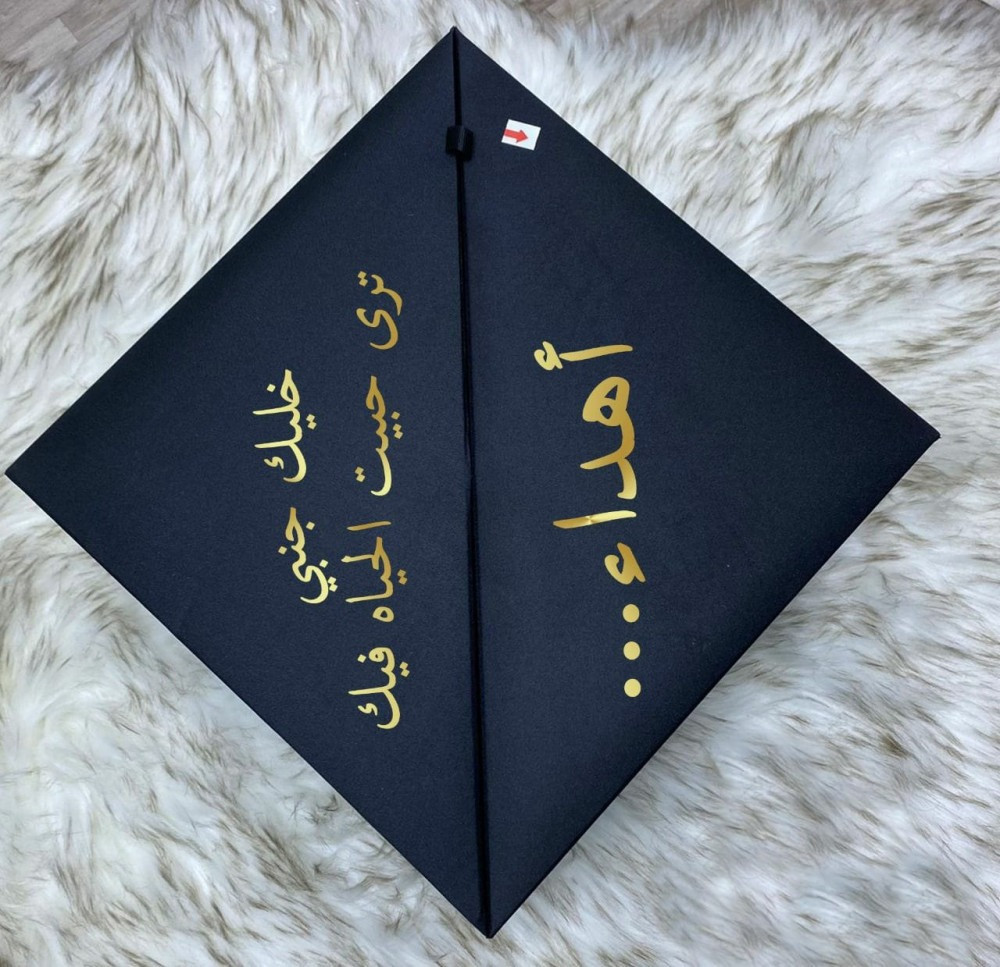 أهداء...
ترى حبيت الحياه فيك
خليك جنبي